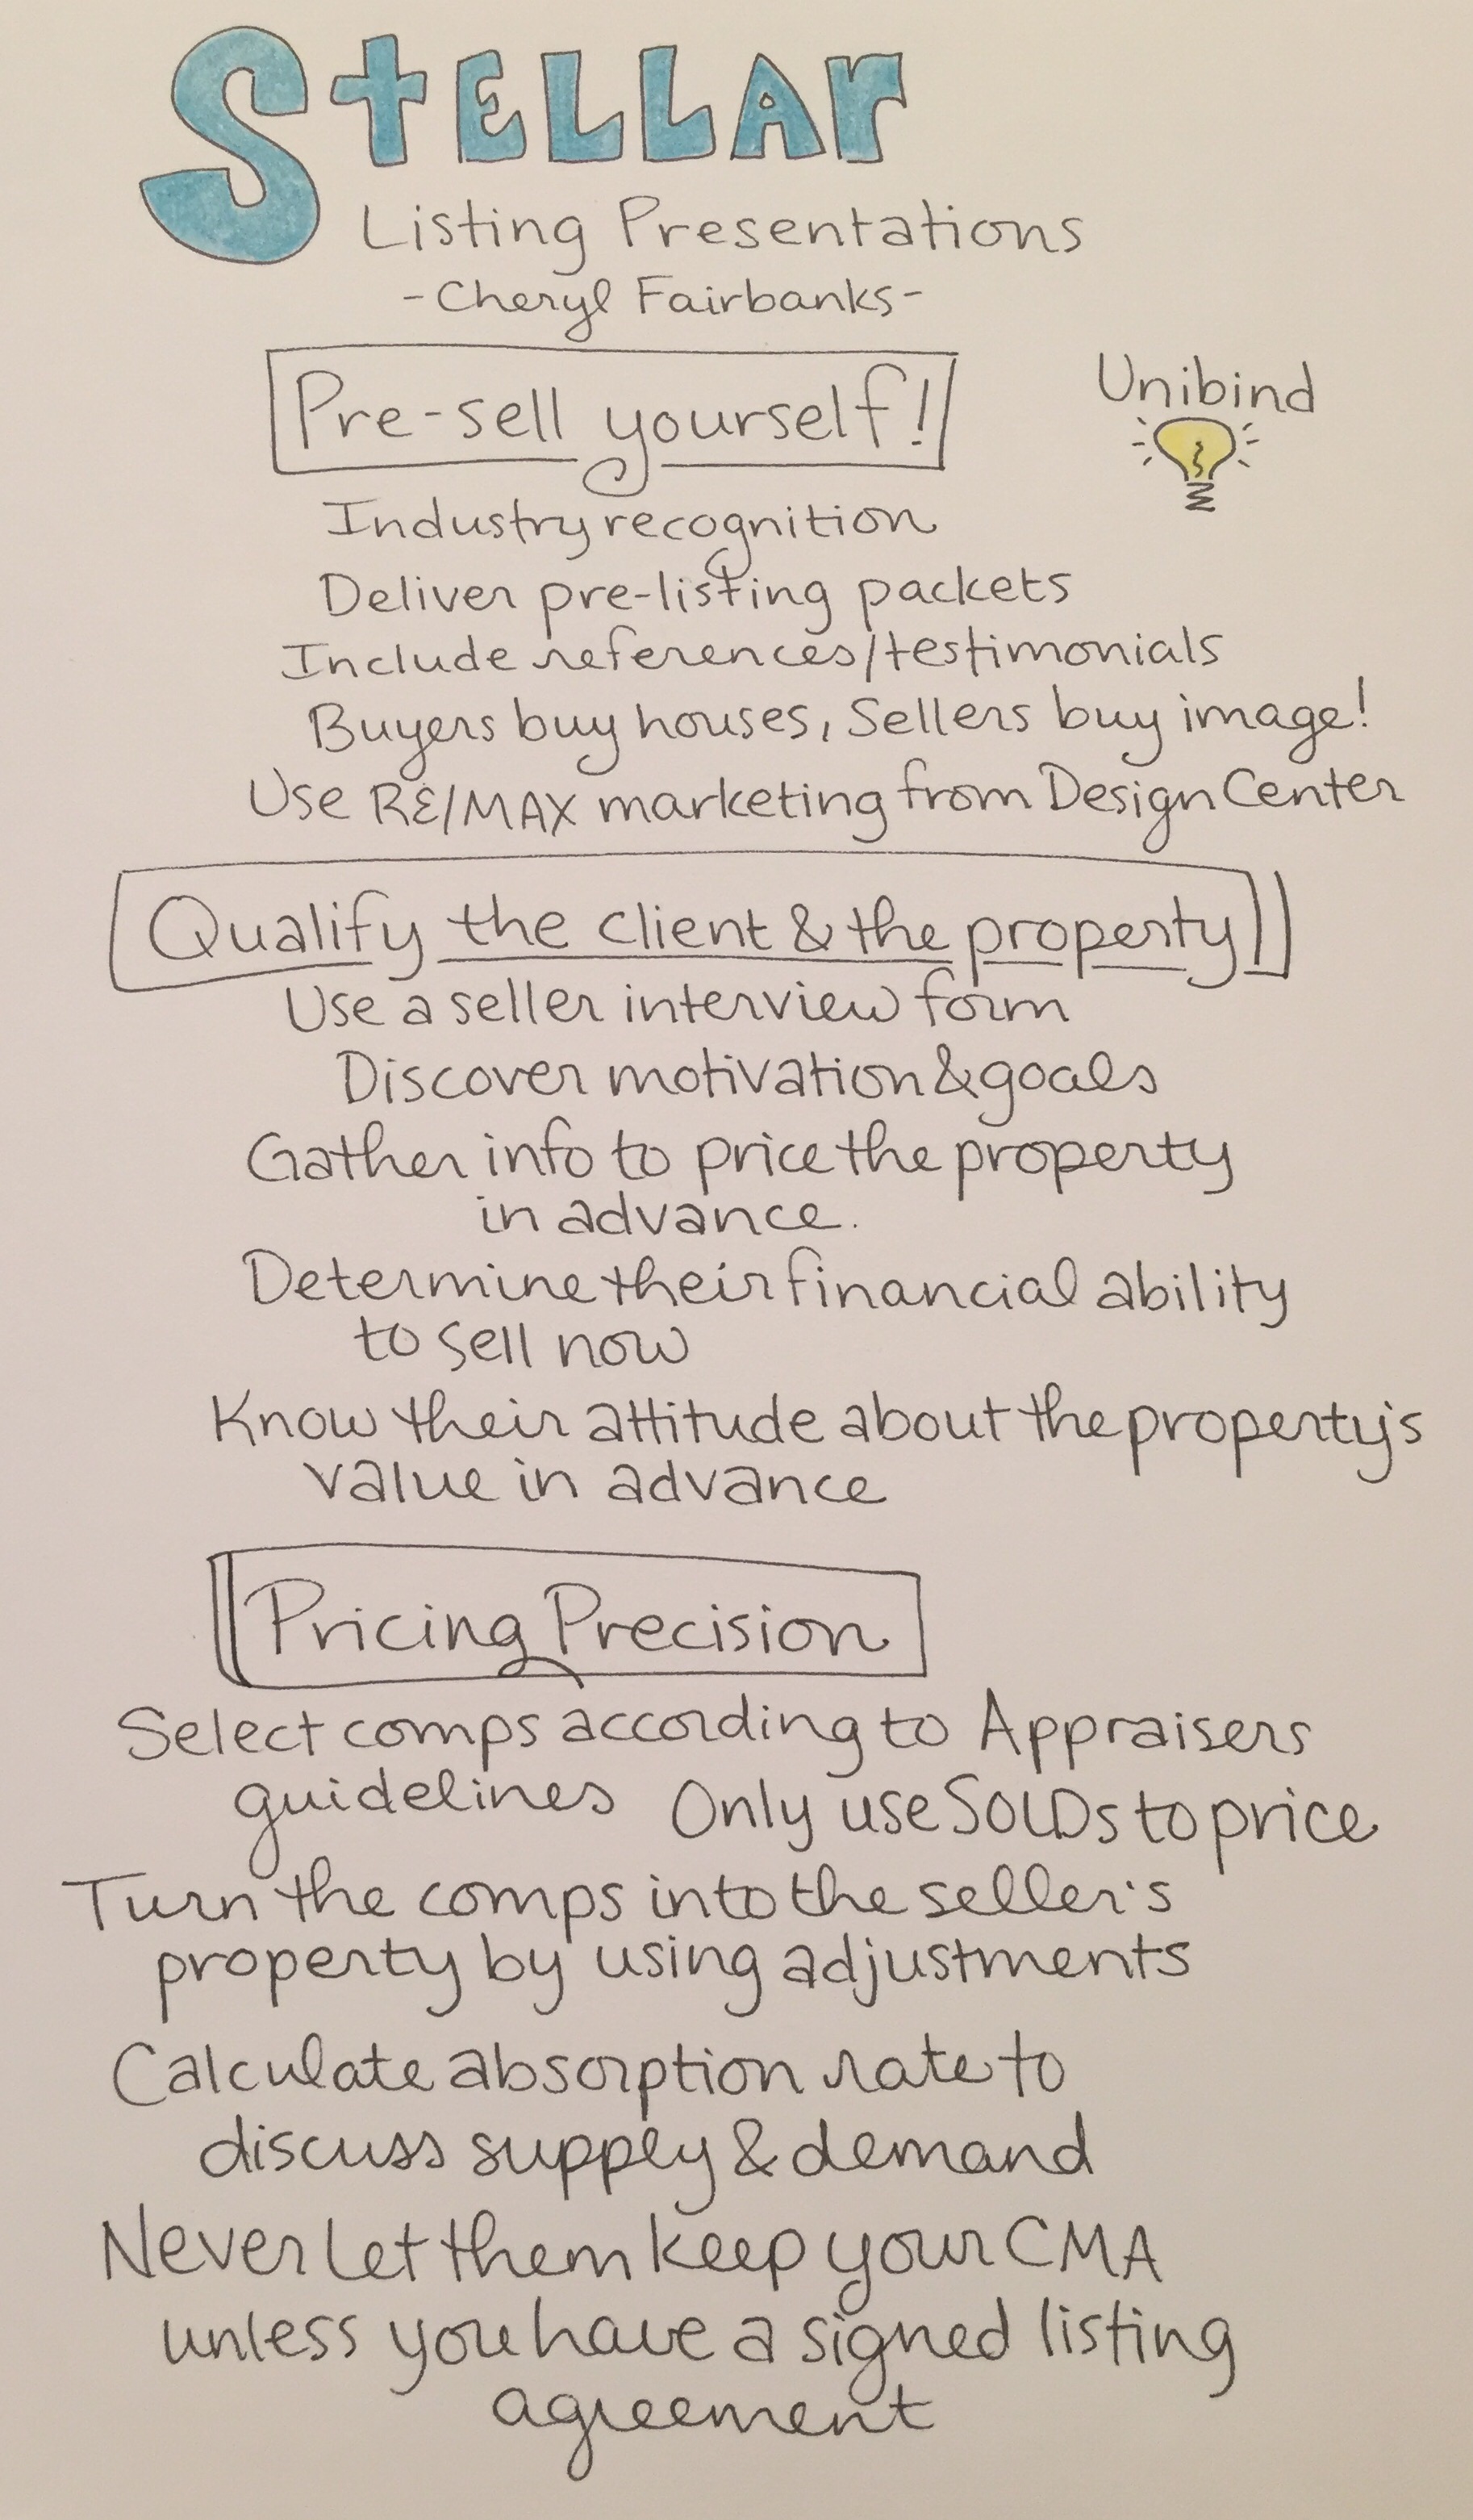 STELLAR
Listing Presentations
-Cheryl Fairbanks-
Pre-sell yourself!
Unibind
Industry recognition
Deliver pre-listing packets
Include references/testimonials
Buyers buy houses, Sellers buy image!
Use RE/MAX marketing from Design Center
Qualify the client & the property
Use a seller interview form
Discover motivation & goals
Gather info to price the property
in advance.
Determine their financial ability
to sell now
Know their attitude about the property's
value in advance
Pricing Precision
Select comps according to Appraisers
guidelines Only use SOLDs to price
Turn the comps into the seller's
property by using adjustments
Calculate absorption rate to
discuss supply & demand
Never let them keep your CMA
unless you have a signed listing
agreement